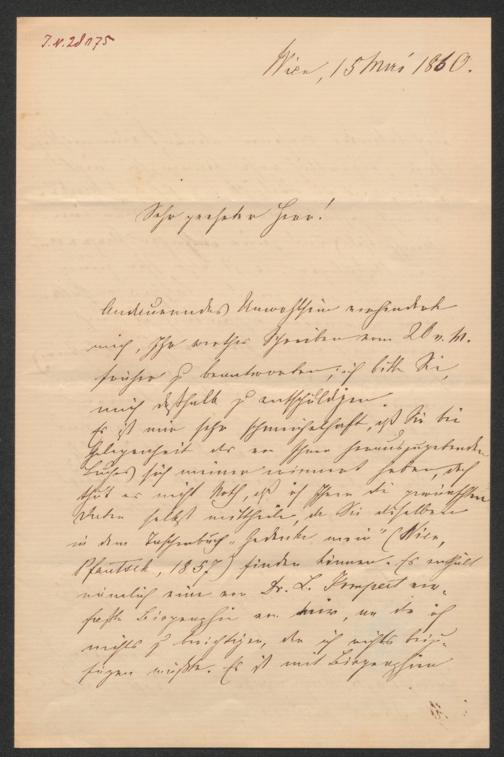 J.N. 28175
Wien, 15 Mai 1860.
Sehr geehrter Herr!
Andauerndes Unwohlsein verhinderte
mich, Ihr werthes Schreiben vom 20 v. M.
früher zu beantworten; ich bitte Sie,
mich deßhalb zu entschuldigen.
Es ist mir sehr schmeichelhaft, daß Sie bei
Gelegenheit des von Ihnen herauszugebenden
Buches sich meiner erinnert haben, doch
thut es nicht Noth, daß ich Ihnen die gewünschten
Daten selbst mittheile, da Sie dieselben
in dem Taschenbuch "Gedenke mein" (Wien,
Pfautsch, 1857) finden können. Es enthält
nämlich eine von Dr. L. Kompert ver-
faßte Biographie von mir, an der ich
nichts zu berichtigen, der ich nichts beizu-
fügen wüßte. Es ist mit Biographien